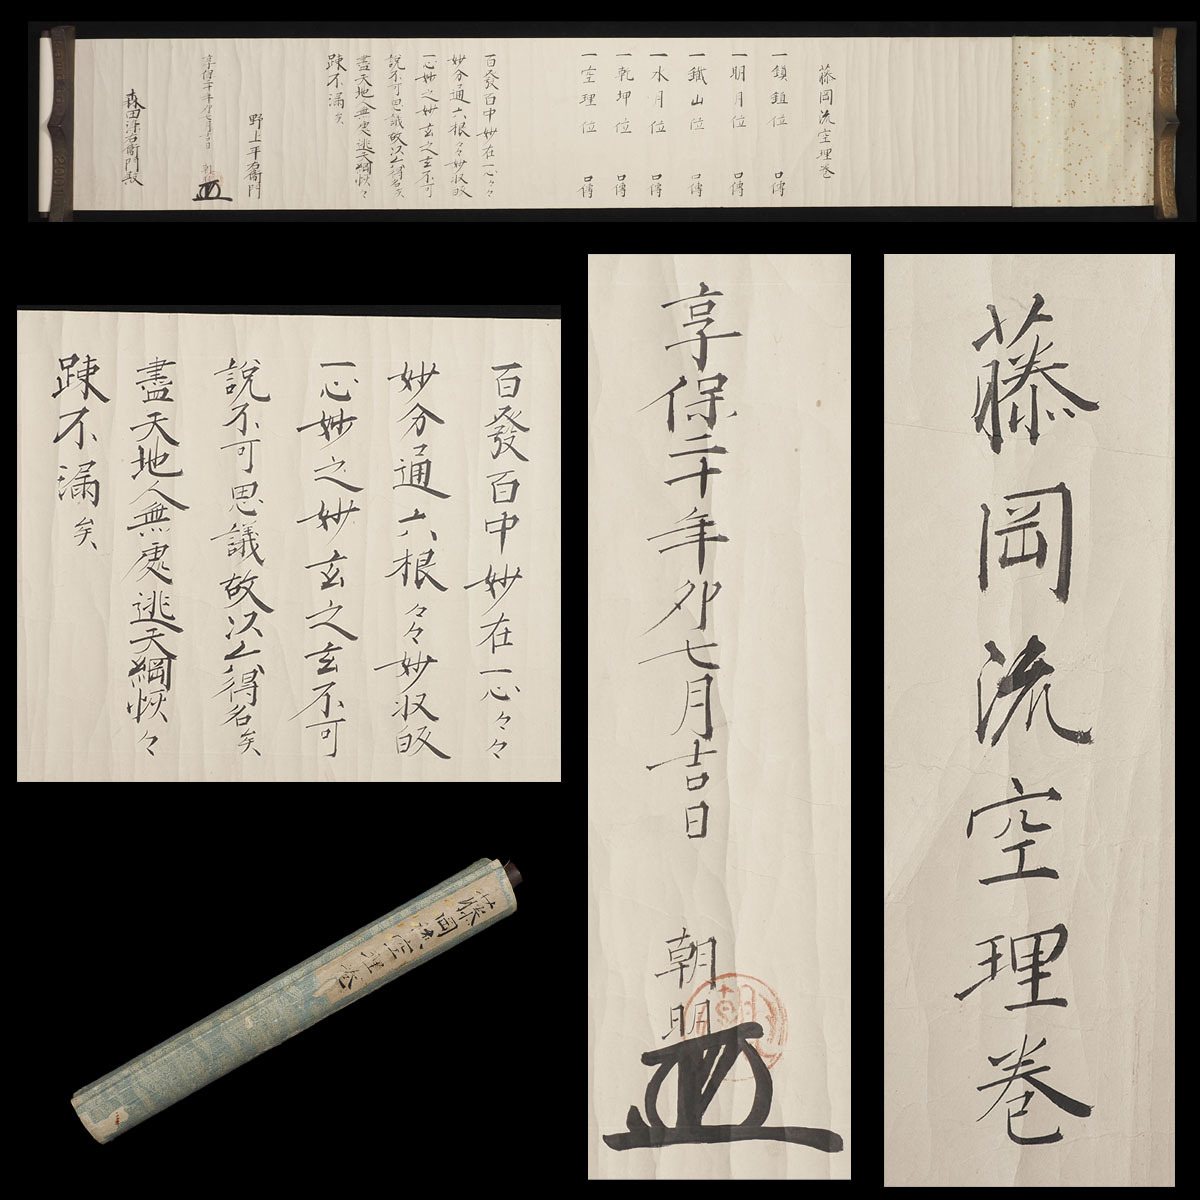 藤岡流空理巻
一鎖鎮位 口傳
一明月位 口傳
一鐵山位 口傳
一水月位 口傳
一乾坤位 口傳
一空理位 口傳
百發百中妙在一心々々
妙分通六根々々妙収皈
一心妙之妙玄之玄不可
說不可思議故以亡得名矣
盡天地人無處逃天綱恢々
踈不漏矣
野上平右衛門
享保二十年卯七月吉日 朝明
森田 右衛門殿
百發百中妙在一心々々
妙分通六根々々妙収皈
一心妙之妙玄之玄不可
說不可思議故以亡得名矣
盡天地人無處逃天綱恢々
踈不漏矣
享保二十年卯七月吉日 朝明
藤岡流空理巻
藤岡流空理巻